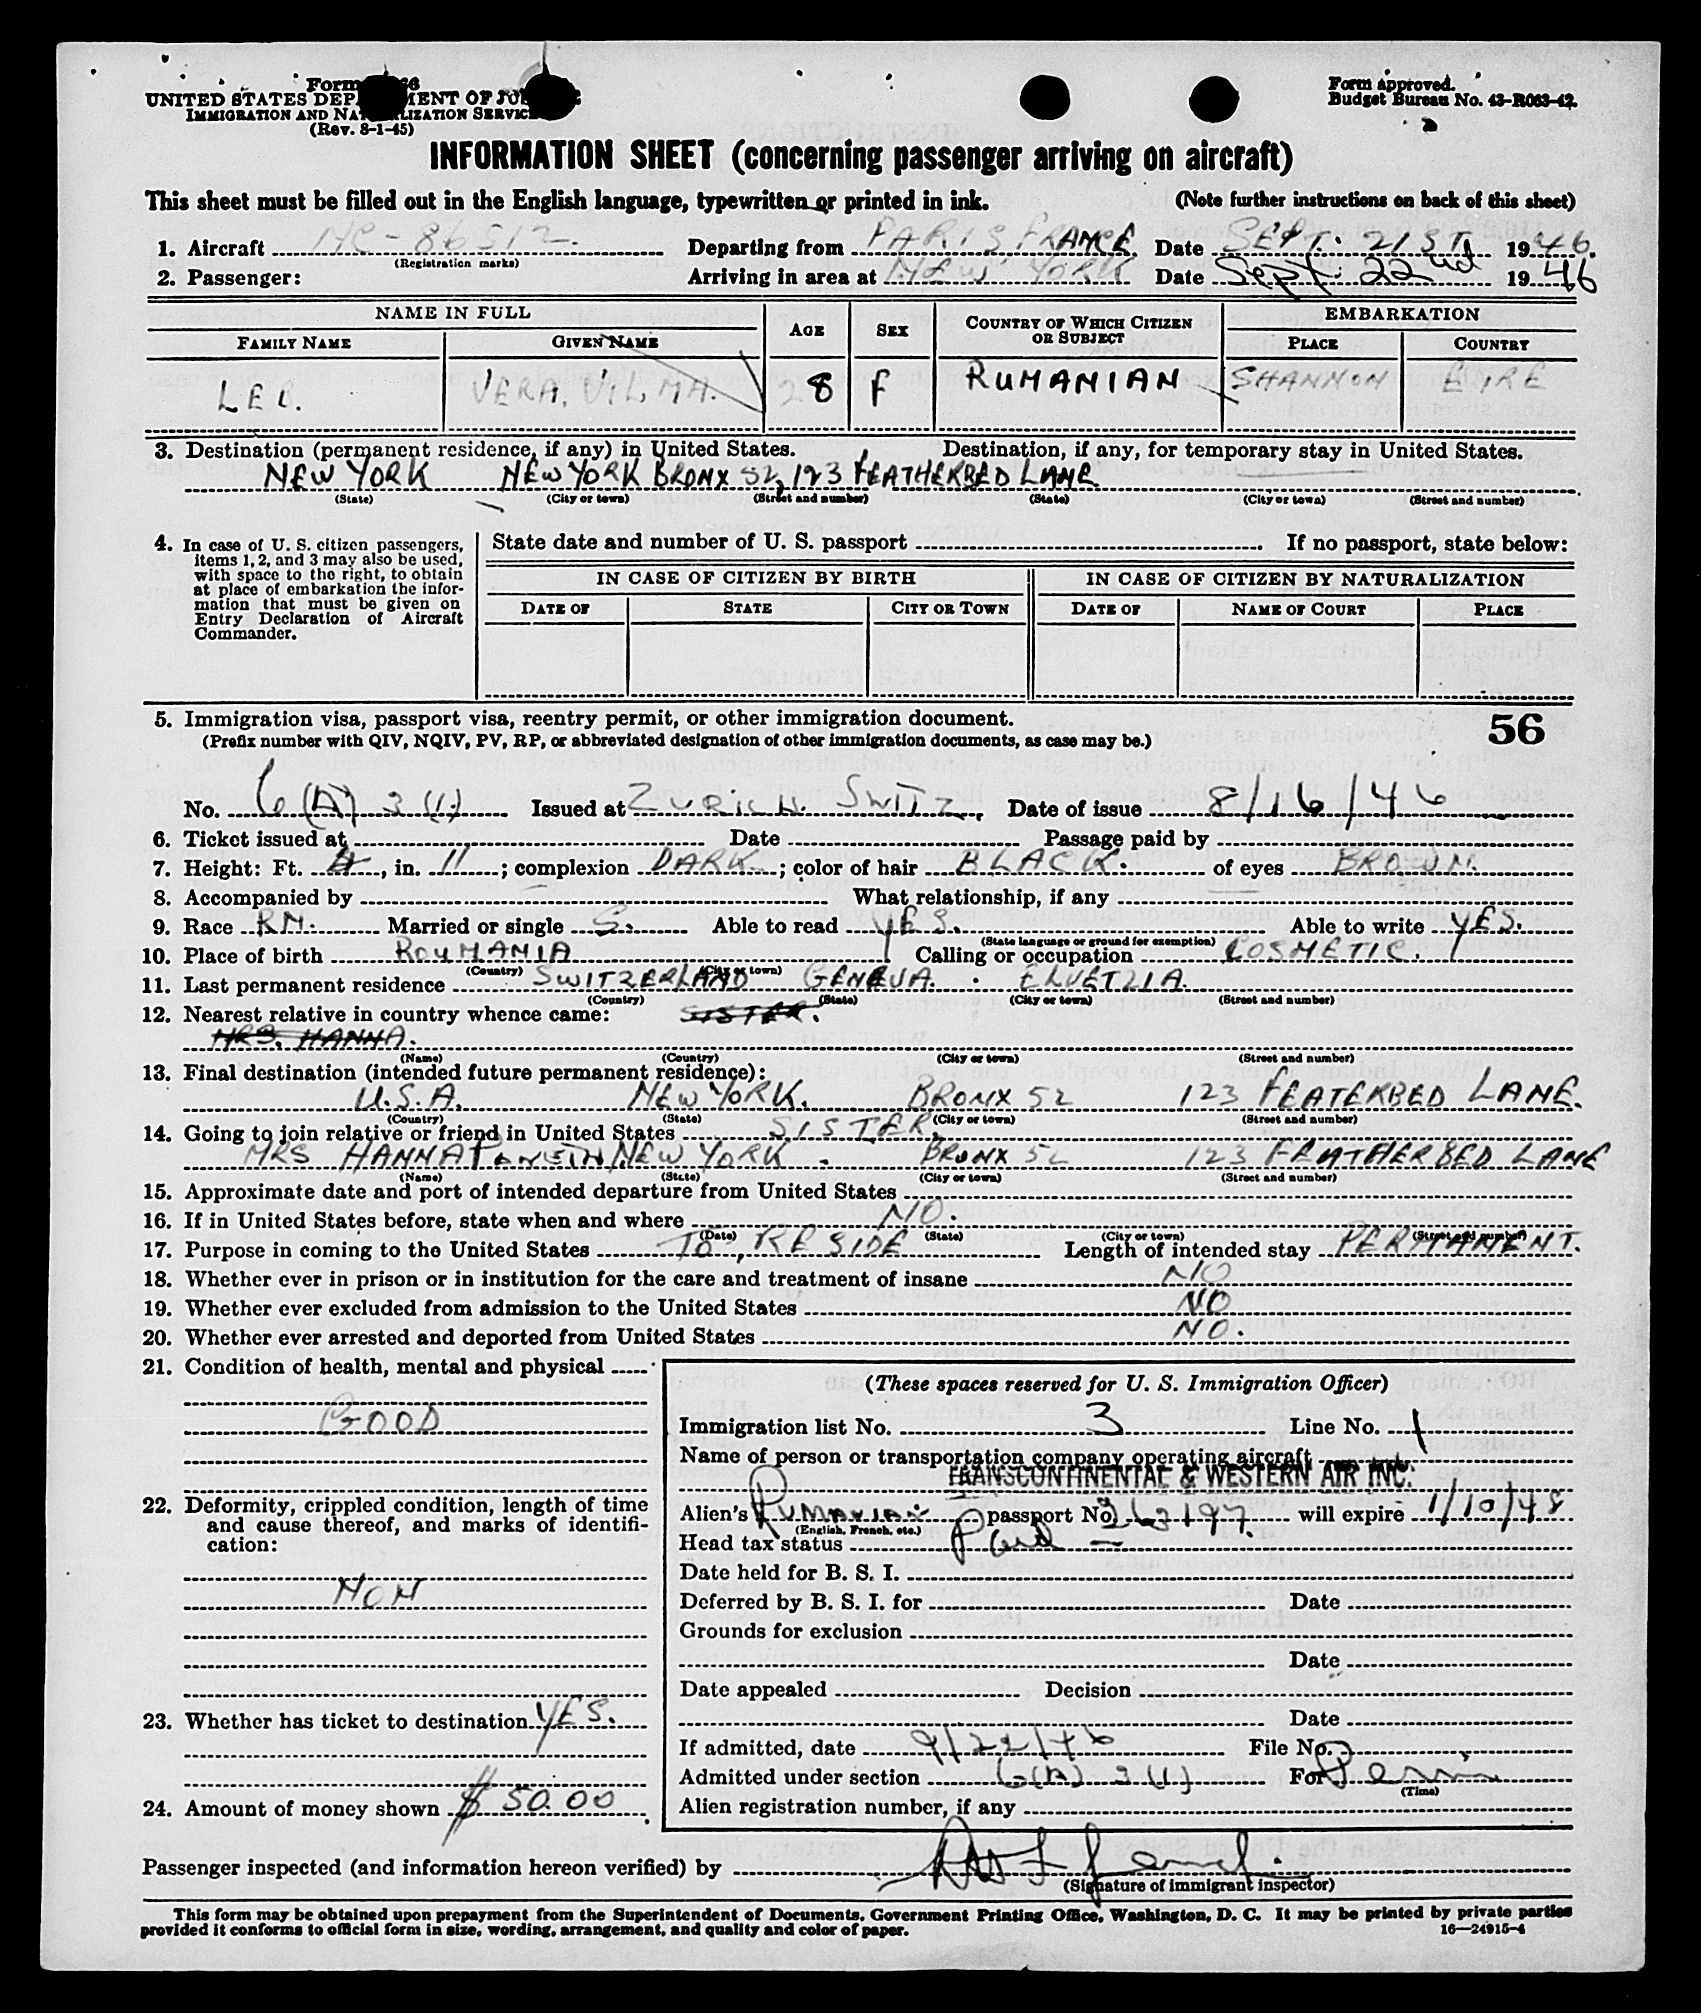 Form
UNITED STATES DEP MENT OF JU
IMMIGRATION AND NA LIZATION SERVIC
(Rev. 8-1-45)
Form approved.
Budget Bureau No. 43-R063-42.
INFORMATION SHEET (concerning passenger arriving on aircraft)
This sheet must be filled out in the English language, typewritten or printed in ink. (Note further instructions on back of this sheet)
1. Aircraft NC-86512. Departing from PARIS FRANCE. Date SEPT. 21ST. 1946.
(Registration marks)
2. Passenger: Arriving in area at NEW YORK Date Sept. 22nd 1946
NAME IN FULL AGE SEX COUNTRY OF WHICH CITIZEN OR SUBJECT EMBARKATION
FAMILY NAME GIVEN NAME PLACE COUNTRY
VERA, VILMA. 28 F RUMANIAN SHANNON EIRE
3. Destination (permanent residence, if any) in United States. Destination, if any, for temporary stay in United States.
NEW YORK NEW YORK BRONX 52, 123 FEATHERBED LANE
(State) (City or town) (Street and number) (State) (City or town) (Street and number)
4. In case of U. S. citizen passengers, items 1, 2, and 3 may also be used, with space to the right, to obtain at place of embarkation the information that must be given on Entry Declaration of Aircraft Commander.
State date and number of U. S. passport . If no passport, state below:
IN CASE OF CITIZEN BY BIRTH IN CASE OF CITIZEN BY NATURALIZATION
DATE OF STATE CITY OR TOWN DATE OF NAME OF COURT PLACE
5. Immigration visa, passport visa, reentry permit, or other immigration document. 56
(Prefix number with QIV, NQIV, PV, RP, or abbreviated designation of other immigration documents, as case may be.)
No. 6(A) 3(1) Issued at ZURICH. SWITZ. Date of issue 8/16/46
6. Ticket issued at Date Passage paid by
7. Height: Ft. 4, in. 11; complexion DARK; color of hair BLACK. of eyes BROWN.
8. Accompanied by What relationship, if any
9. Race RM. Married or single S. Able to read YES. Able to write YES.
(State language or ground for exemption)
10. Place of birth ROUMANIA Calling or occupation COSMETIC.
(Country) (City or town)
11. Last permanent residence SWITZERLAND GENEVA. ELVETZIA.
(Country) (State) (City or town) (Street and number)
12. Nearest relative in country whence came: SISTER.
MRS. HANNA.
(Name) (Country) (City or town) (Street and number)
13. Final destination (intended future permanent residence):
U.S.A. NEW YORK. BRONX 52 123 FEATERBED LANE.
(Country) (State) (City or town) (Street and number)
14. Going to join relative or friend in United States SISTER.
MRS HANNA NEW YORK. BRONX 52 123 FEATHERBED LANE
(Name) (State) (City or town) (Street and number)
15. Approximate date and port of intended departure from United States
16. If in United States before, state when and where NO.
(Date) (State) (City or town) (Street and number)
17. Purpose in coming to the United States TO RESIDE Length of intended stay PERMANENT.
18. Whether ever in prison or in institution for the care and treatment of insane NO
19. Whether ever excluded from admission to the United States NO
20. Whether ever arrested and deported from United States NO.
21. Condition of health, mental and physical
GOOD
22. Deformity, crippled condition, length of time and cause thereof, and marks of identification:
NON
23. Whether has ticket to destination YES.
24. Amount of money shown $50.00
(These spaces reserved for U. S. Immigration Officer)
Immigration list No. 3 Line No. 1
Name of person or transportation company operating aircraft
TRANSCONTINENTAL & WESTERN AIR INC.
Alien's RUMANIAN passport No. will expire 1/10/48
(English, French, etc.)
Head tax status Paid
Date held for B. S. I.
Deferred by B. S. I. for Date
Grounds for exclusion
Date
Date appealed Decision
Date
If admitted, date 9/22/46 File No.
Admitted under section 6(A) 3(1) For Perm
(Time)
Alien registration number, if any
Passenger inspected (and information hereon verified) by
(Signature of immigrant inspector)
This form may be obtained upon prepayment from the Superintendent of Documents, Government Printing Office, Washington, D. C. It may be printed by private parties
provided it conforms to official form in size, wording, arrangement, and quality and color of paper. 16—24915-4